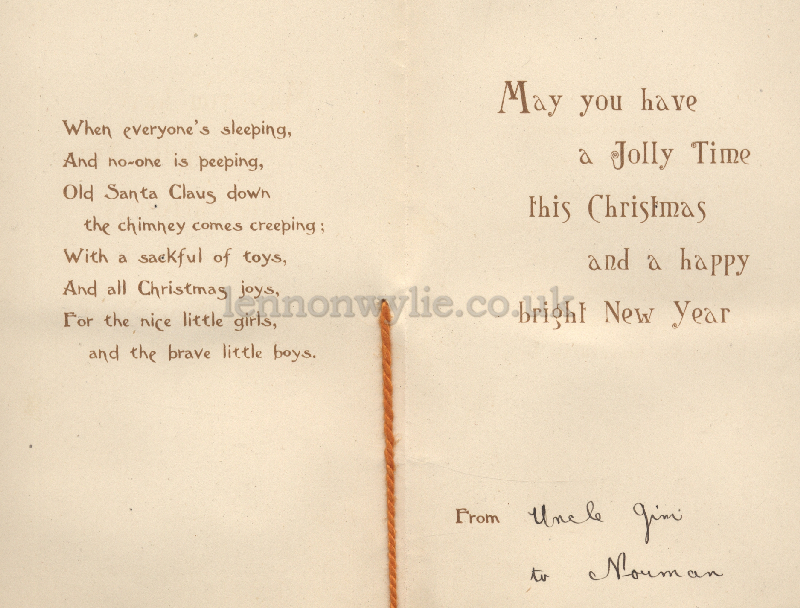 When everyone's sleeping,
And no-one is peeping,
Old Santa Claus down
the chimney comes creeping;
With a sackful of toys,
And all Christmas joys,
For the nice little girls,
and the brave little boys.
May you have
a Jolly Time
this Christmas
and a happy
bright New Year
From Uncle Jim
to Norman
lennonwylie.co.uk